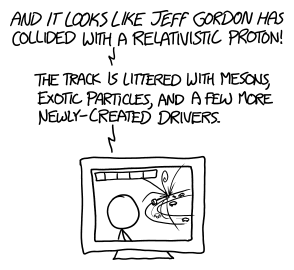 AND IT LOOKS LIKE JEFF GORDON HAS
COLLIDED WITH A RELATIVISTIC PROTON!
THE TRACK IS LITTERED WITH MESONS,
EXOTIC PARTICLES, AND A FEW MORE
NEWLY-CREATED DRIVERS.